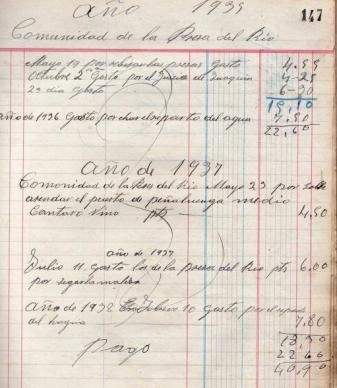 año 1935 147
Comunidad de la Presa del Rio
Mayo 19 por las presas Gasto 4.55
Octubre 2º Gasto por el Juicio de Joaquin 4-25
23 dia Gasto 6-30
15,10
año de 1936 Gasto por el reparto del agua 7.50
22,60
año de 1937
Comunidad de la Presa del Rio Mayo 23 por
arrendar el puerto de peñaluenga medio
Cantaro Vino pts 4,50
año de 1937
Julio 11. Gasto los de la Presa del Rio pts 6.00
por segar la maleza
año de 1938 Febrero 10 Gasto por el reparto
del hagua 7.80
18,30
22 60
40,90
pago